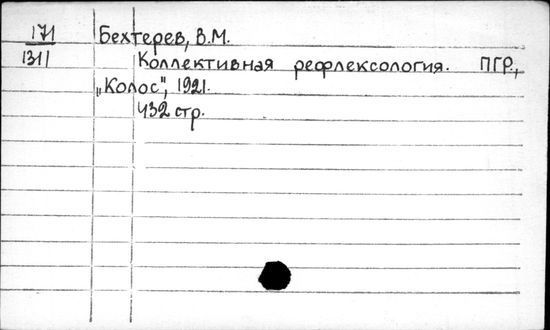 171 Бехтерев, В.М.
1311 Коллективная рефлексология. ПГР.,
„Колос", 1921.
432 стр.